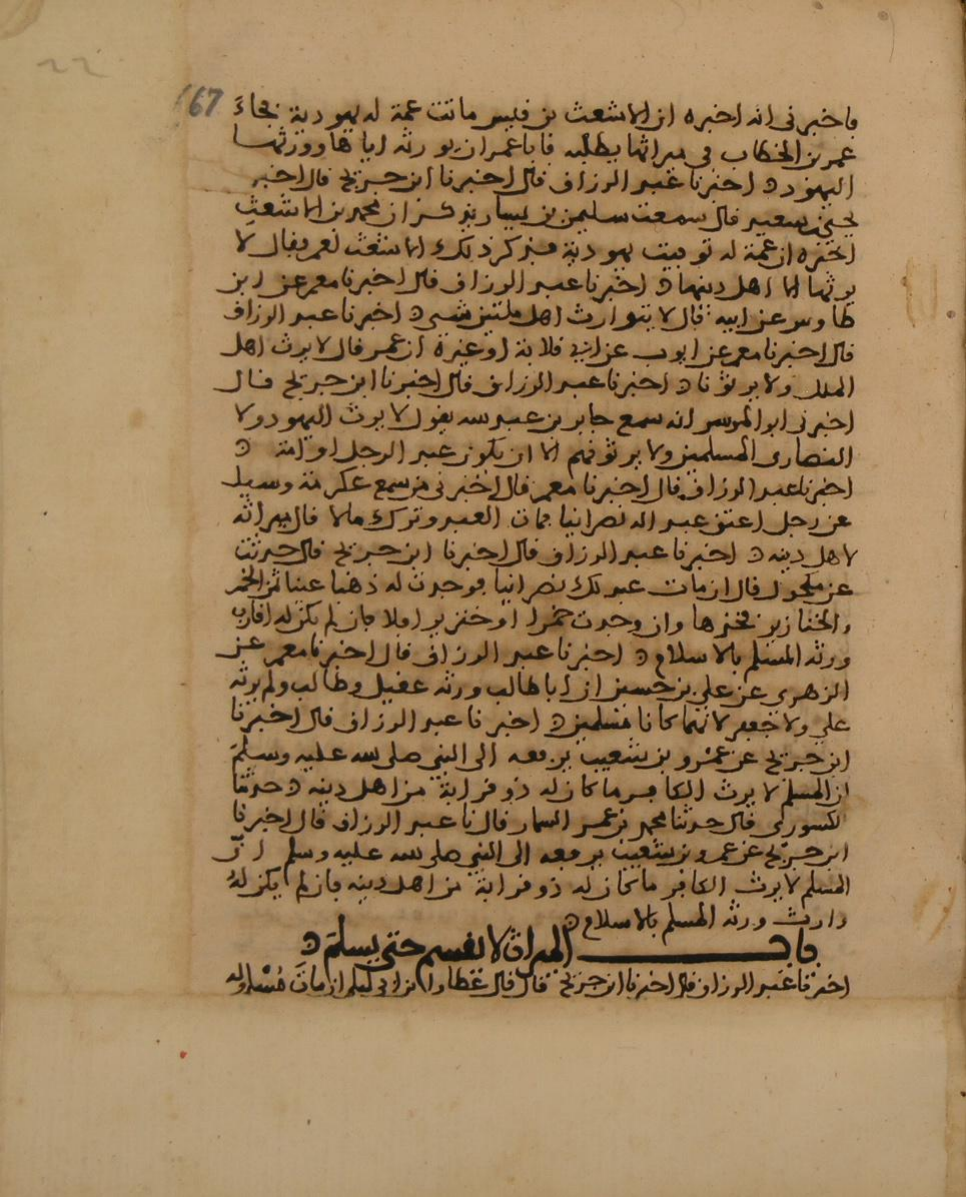 67
فاخبرني انه اخبره ان الاشعث بن قيس ماتت عمة له يهودية فجاء
عمر بن الخطاب في ميراثها يطلبه فابا عمر ان يورثه اياها وورثها
اليهود ه اخبرنا عبد الرزاق قال اخبرنا ابن جريج قال اخبر
يحيى بن سعيد قال سمعت سليمن بن يسار يذكر ان محمد بن الاشعث
اخبره ان عمة له توفيت يهودية فذكر ذلك الاشعث لعمر فقال لا
يرثها الا اهل دينها ه اخبرنا عبد الرزاق قال اخبرنا معمر عن ابن
طاوس عن ابيه قال لا يتوارث اهل ملتين شتى ه اخبرنا عبد الرزاق
قال اخبرنا معمر عن ايوب عن ابي قلابة او غيره ان عمر قال لا يرث اهل
الملل ولا يرثونا ه اخبرنا عبد الرزاق قال اخبرنا ابن جريج قال
اخبرني ابو الزبير انه سمع جابر بن عبد الله يقول لا يرث اليهود ولا
النصارى المسلمين ولا يرثونهم الا ان يكون عبد الرجل او امته ه
اخبرنا عبد الرزاق قال اخبرنا معمر قال اخبرني من سمع عكرمة وسيل
عن رجل اعتق عبدا له نصرانيا فمات العبد وترك مالا قال ميراثه
لاهل دينه ه اخبرنا عبد الرزاق قال اخبرنا ابن جريج قال حدثت
عن مكحول قال ان مات عبد لك نصرانيا فوجدت له ذهبا عينا ثمن الخمر
والخنازير فخذها وان وجدت خمرا او خنزيرا فلا فان لم يكن له اقارب
ورثه المسلم بالاسلام ه اخبرنا عبد الرزاق قال اخبرنا معمر عن
الزهري عن علي بن حسين ان ابا طالب ورثه عقيل وطالب ولم يرثه
علي ولا جعفر لانهما كانا مسلمين ه اخبرنا عبد الرزاق قال اخبرنا
ابن جريج عن عمرو بن شعيب يرفعه الى النبي صلى الله عليه وسلم
ان المسلم لا يرث الكافر ما كان له ذو قرابة من اهل دينه ه حدثنا
الكشوري قال حدثنا محمد بن عمر السمار قال نا عبد الرزاق قال اخبرنا
ابن جريج عن عمرو بن شعيب يرفعه الى النبي صلى الله عليه وسلم ان
المسلم لا يرث الكافر ما كان له ذو قرابة من اهل دينه فان لم يكن له
وارث ورثه المسلم بالاسلام ه
باب الميراث لا يقسم حتى يسلم ه
اخبرنا عبد الرزاق قال اخبرنا ابن جريج قال قال عطا وابن ابي ليلى ان مات مسلم وله